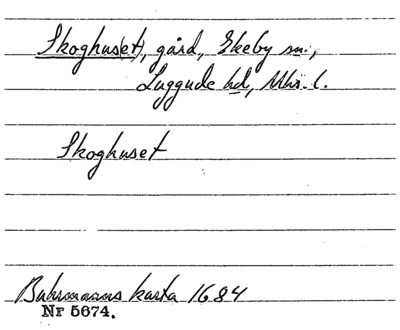 Skoghus(et), gård, Ekeby sn.,
Luggude hd, Mhs. l.
Skoghuset
Buhrmanns karta 1684
Nr 5674.